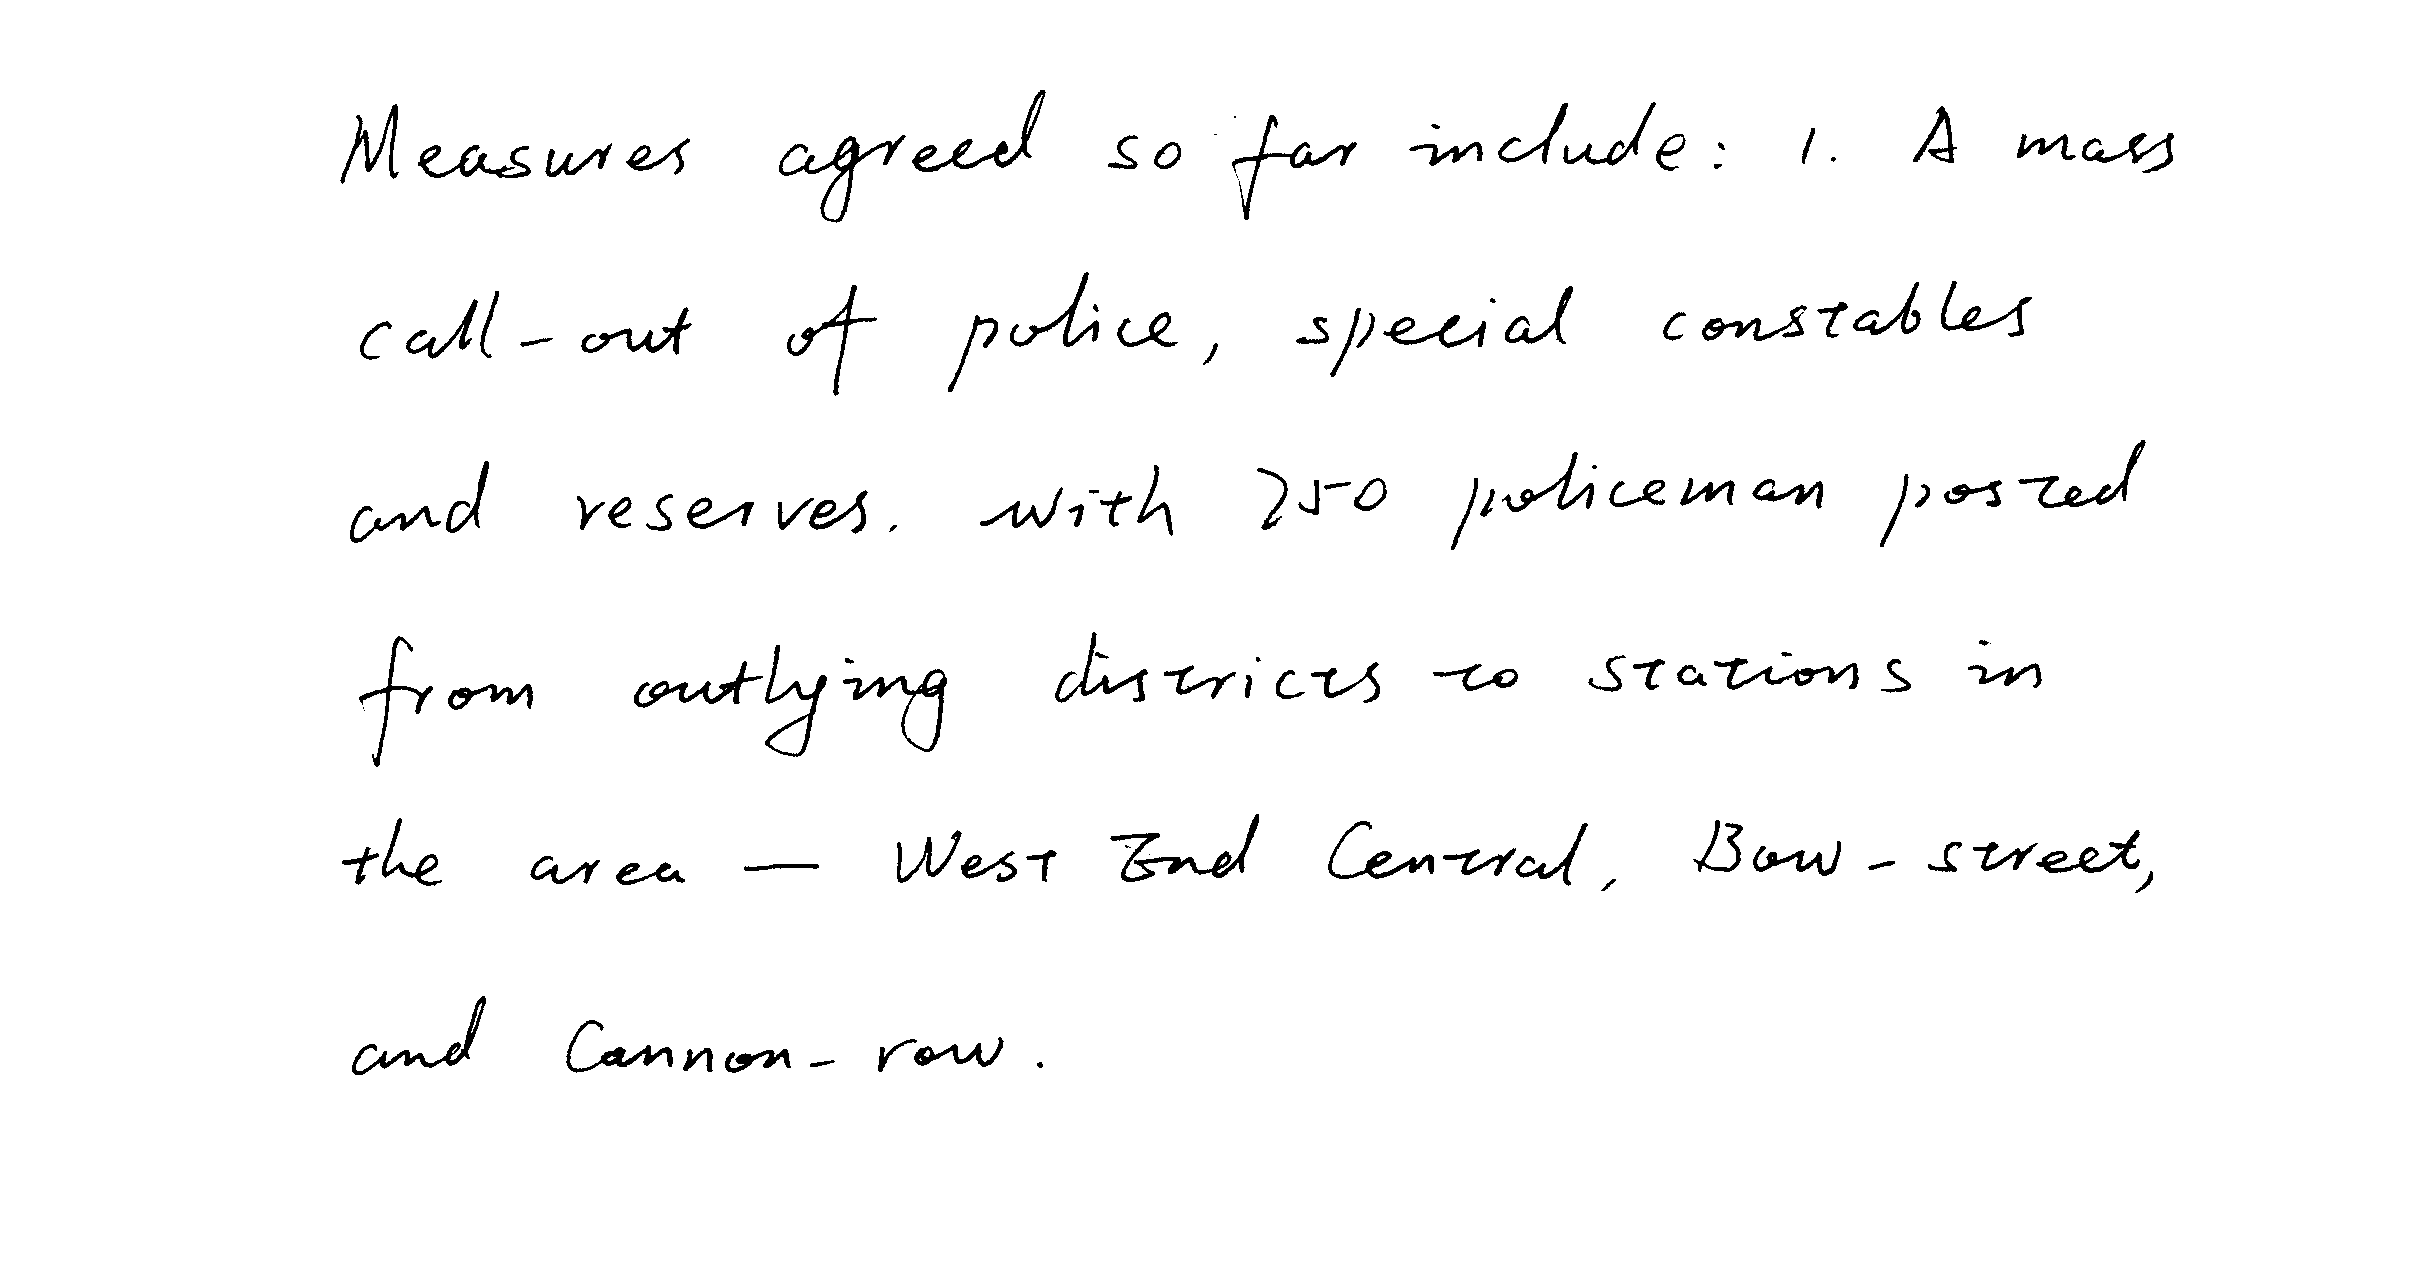 Measures agreed so far include: 1. A mass
call-out of police, special constables
and reserves. with 250 policeman posted
from outlying districts to stations in
the area - West End Central, Bow-street,
and Cannon-row.